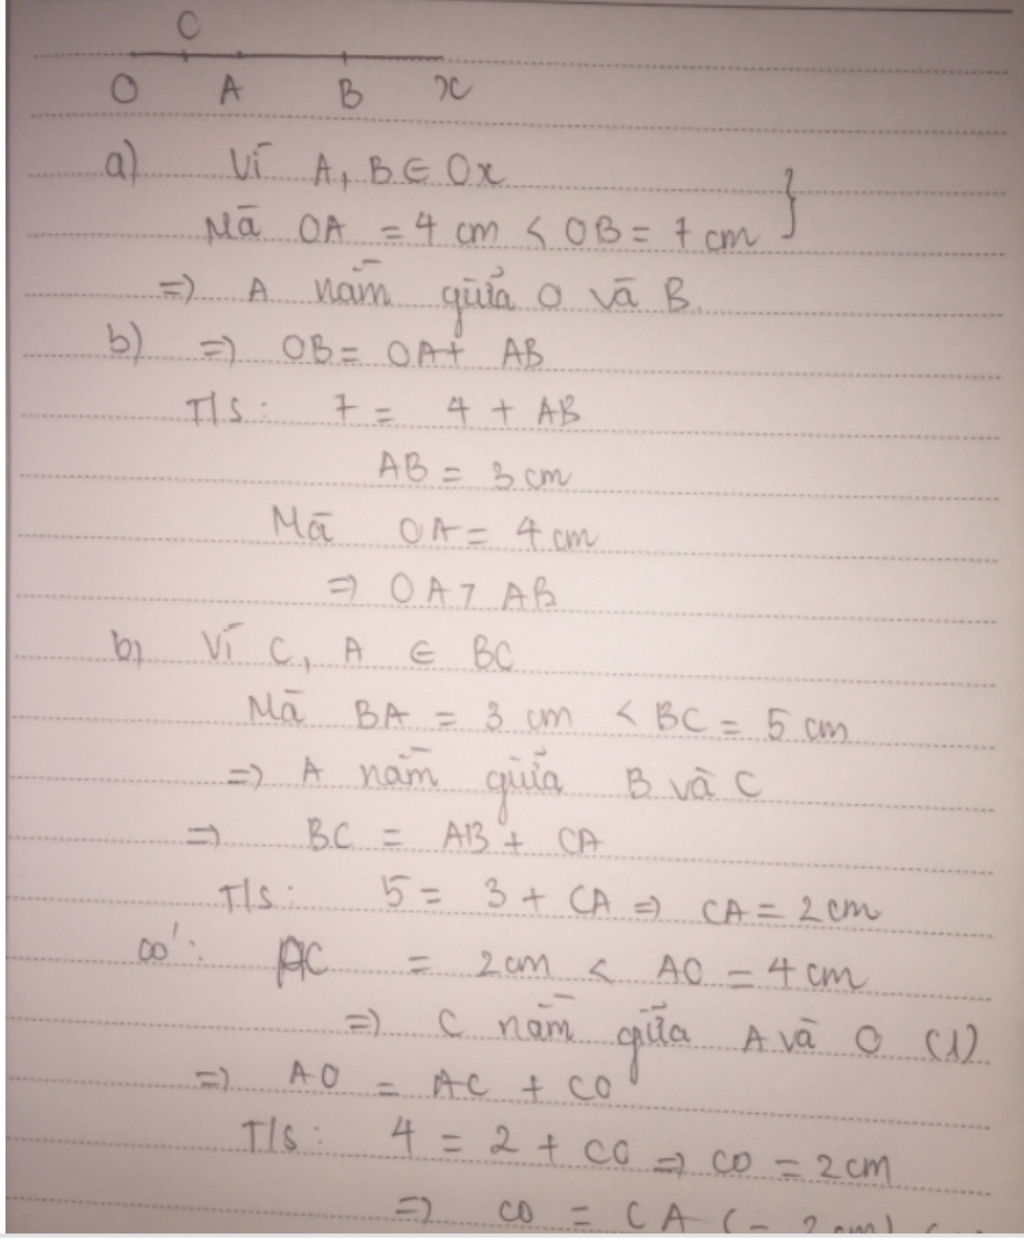 C
O A B x
a) Vì A, B ∈ Ox
Mà OA = 4 cm < OB = 7 cm }
=> A nằm giữa O và B.
b) => OB = OA + AB
T/s: 7 = 4 + AB
AB = 3 cm
Mà OA = 4 cm
=> OA > AB
b) Vì C, A ∈ BC
Mà BA = 3 cm < BC = 5 cm
=> A nằm giữa B và C
=> BC = AB + CA
T/s: 5 = 3 + CA => CA = 2 cm
có: AC = 2 cm < AO = 4 cm
=> C nằm giữa A và O (1)
=> AO = AC + CO
T/s: 4 = 2 + CO => CO = 2 cm
=> CO = CA (= 2 cm)